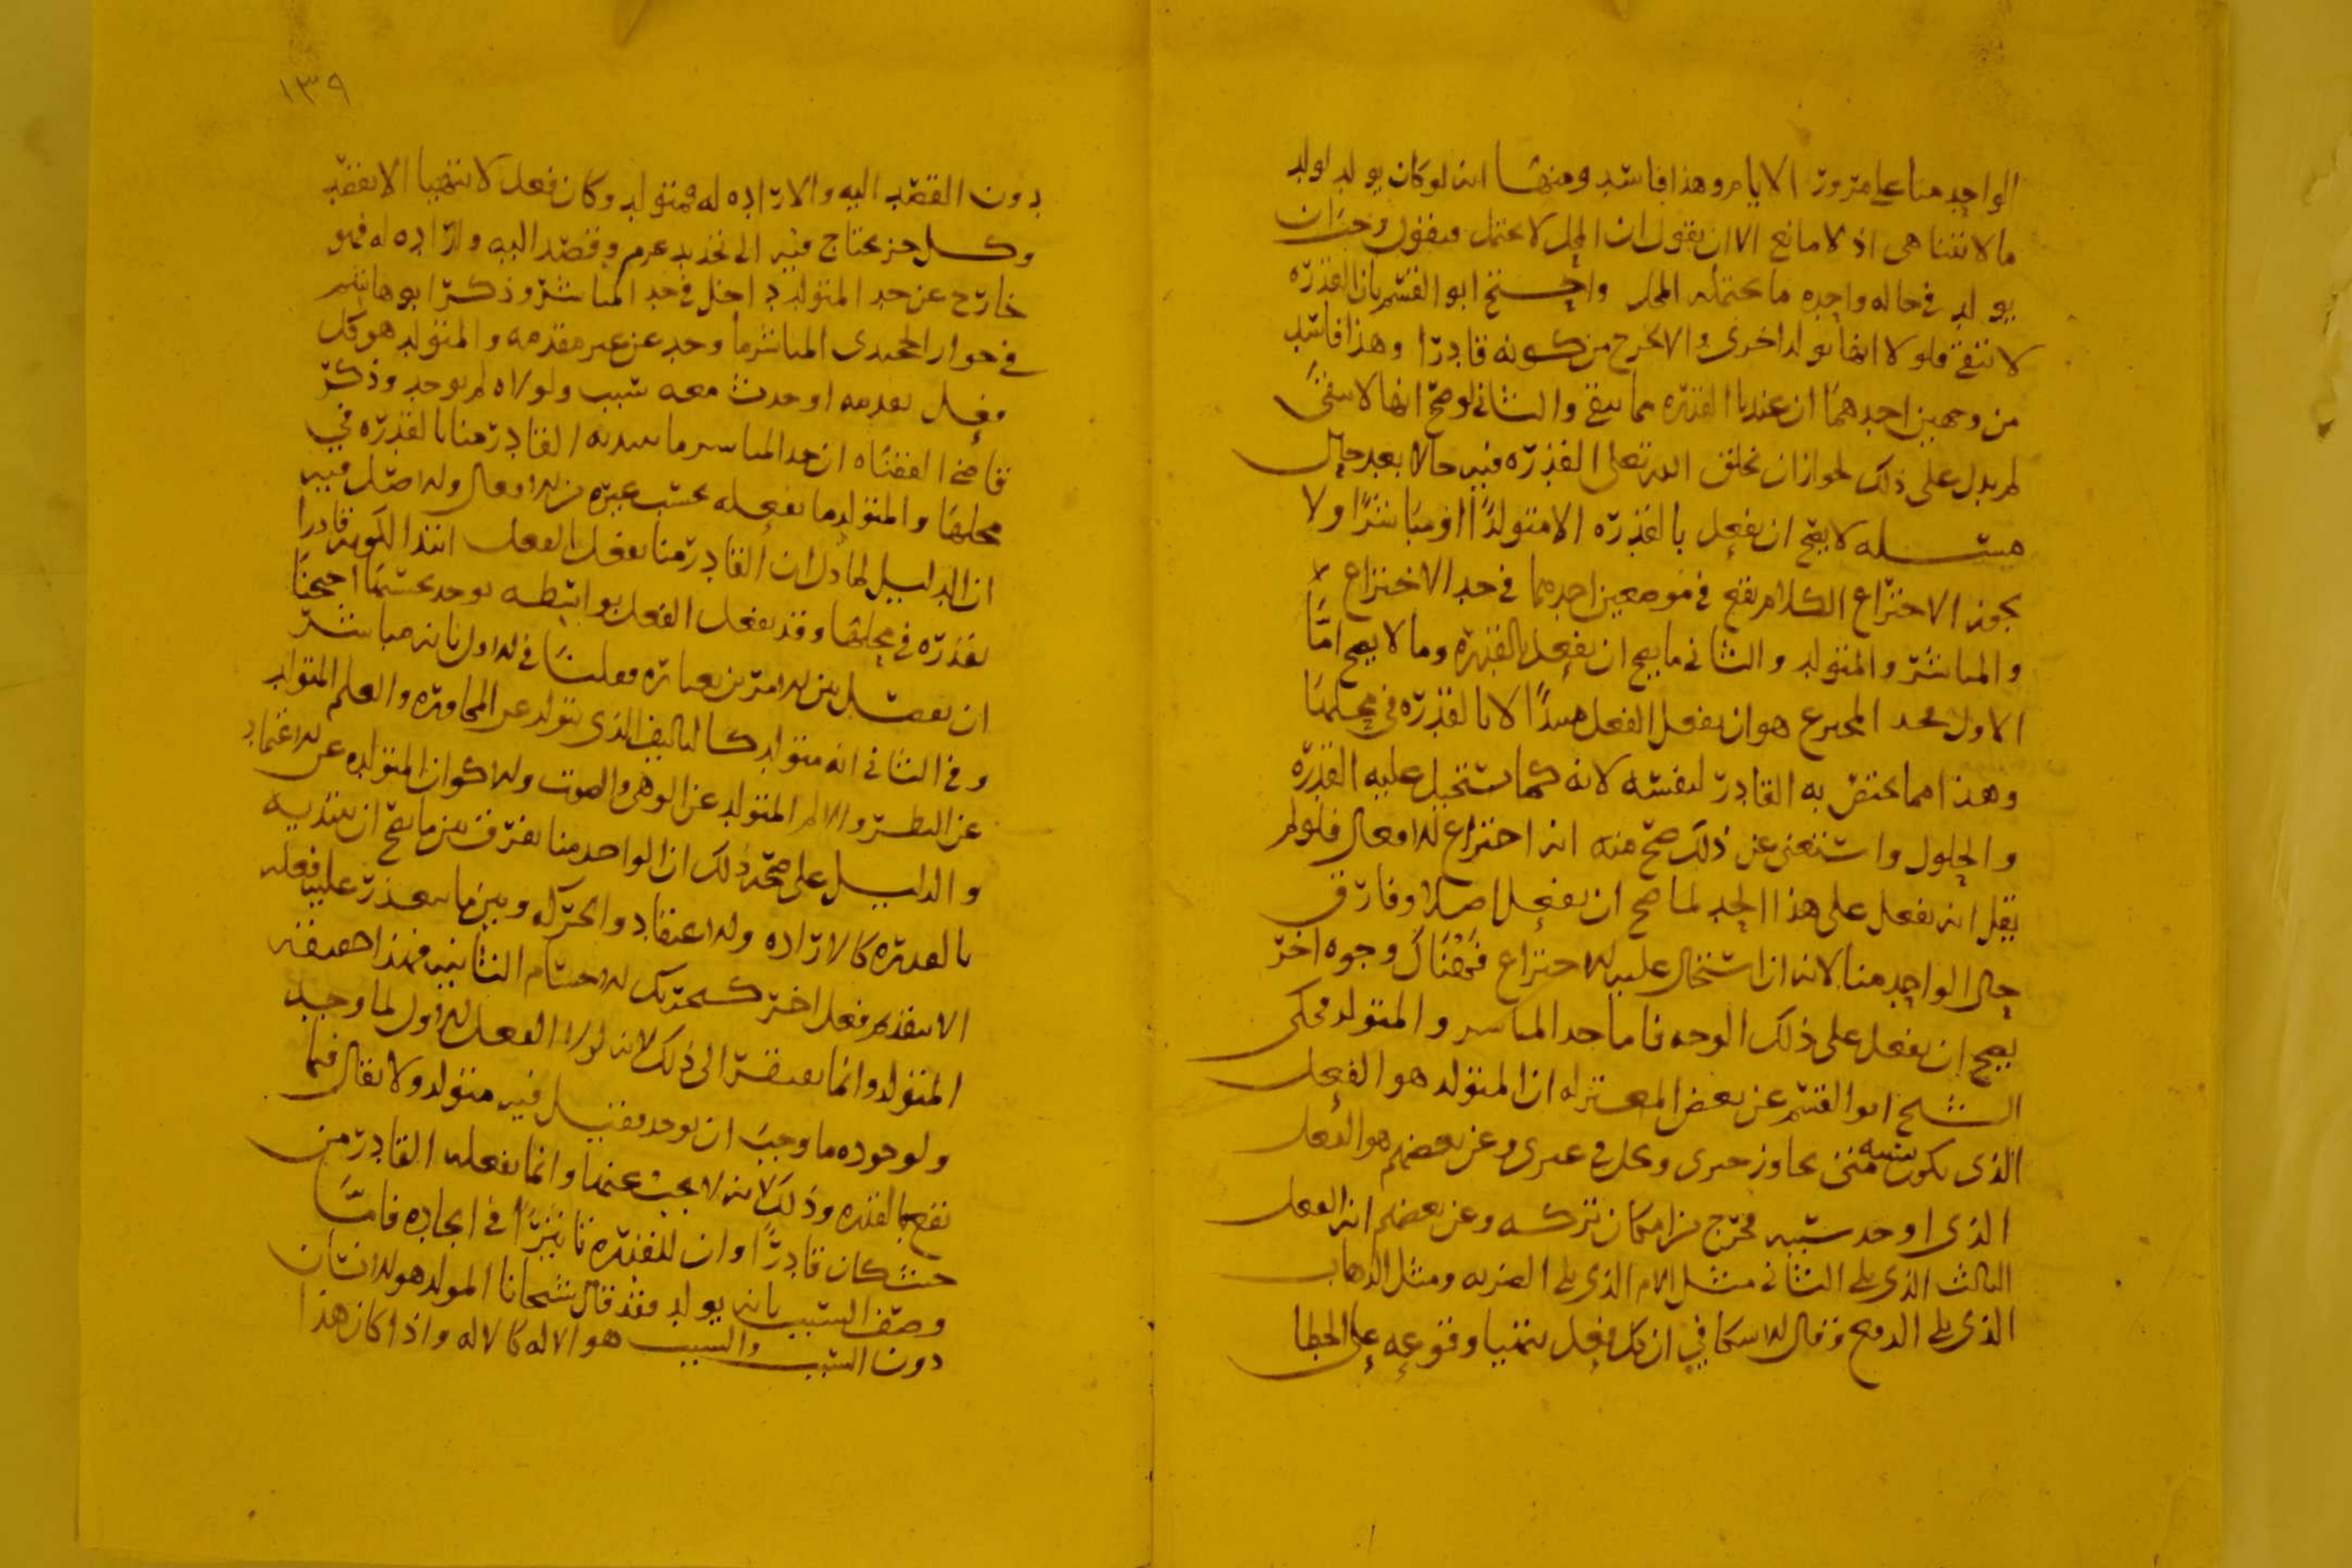 الواحد منا على مرور الايام وهذا فاسد ومنها انه لو كان يولد لولد
ما لا يتناهى اذ لا مانع الا ان يقول ان المحل لا يحتمل فيقول وجب ان
يولد في حاله واحده ما يحتمله المحل واحتج ابو القسم بان القدره
لا تبقى فلولا انها تولد اخرى والا لخرج من كونه قادرا وهذا فاسد
من وجهين احدهما ان عندنا القدره مما يبقى والثاني لو صح انها لا تبقى
لم يدل على ذلك لجواز ان يخلق الله تعالى القدره فيه حالا بعد حال
مسله لا يصح ان يفعل بالقدره الا متولدا او مباشرا ولا
يجوز الاختراع الكلام يقع في موضعين احدهما في حد الاختراع
والمباشر والمتولد والثاني ما يصح ان يفعل بالقدره وما لا يصح اما
الاول فحد المخترع هو ان يفعل الفعل مبتدا لا بالقدره في محلها
وهذا مما يختص به القادر لنفسه لانه كما يستحيل عليه القدره
والحلول واستغنى عن ذلك صح منه اختراع الافعال فلو لم
يقل انه يفعل على هذا الحد لما صح ان يفعل اصلا وفارق
حال الواحد منا لانه ان استحال عليه الاختراع فهناك وجوه اخر
يصح ان يفعل على ذلك الوجه فاما حد المباشر والمتولد فحكى
الشيخ ابو القسم عن بعض المعتزله ان المتولد هو الفعل
الذي يكون سببه منى يجاوز حيزي ويحل في غيري وعن بعضهم هو الفعل
الذي اوجد سببه فخرج من امكان تركه وعن بعضهم انه الفعل
الثالث الذي يلي الثاني مثل الالم الذي يلي الضربه ومثل الذهاب
الذي يلي الدفع وقال الاسكافي ان كل فعل يتهيا وقوعه على الخطا
١٣٩
دون القصد اليه والاراده له فمتولد وكان فعل لا يتهيا الا بقصد
وكل جز يحتاج فيه الى تجديد عزم وقصد اليه واراده له فهو
خارج عن حد المتولد داخل في حد المباشر وذكر ابو هاشم
في المباشر ما وجد عن غير مقدمه والمتولد هو كل
فعل تقدمه او حدث معه سبب ولولاه لم يوجد وذكر
قاضي القضاه ان حد المباشر ما يبتديه القادر منا بالقدره في
محلها والمتولد ما يفعله بحسب غيره من الافعال والاصل فيه
ان الدليل لما دل ان القادر منا يفعل الفعل ابتدا لكونه قادرا
بقدره في محلها وقد يفعل الفعل بواسطه يوجد بحسبها احتجنا
ان نفصل بين الامرين بعباره فقلنا في الاول بانه مباشر
وفي الثاني انه متولد كالتاليف الذي يتولد عن المجاوره والعلم المتولد
عن النظر والالم المتولد عن الوهى والصوت والاكوان المتولده عن الاعتماد
والدليل على صحة ذلك ان الواحد منا يفرق بين ما يصح ان يبتديه
بالقدره كالاراده والاعتقاد والحركه وبين ما يتعذر عليه فعله
الا بتقدم فعل اخر كتحريك الاجسام النائيه فهذا حقيقته
المتولد وانما يفتقر الى ذلك لانه لولا الفعل الاول لما وجد
ولوجوده ما وجب ان يوجد فقيل فيه متولد ولا يقال فيما
يقع بالقدره وذلك لانه لا يجب عنها وانما يفعله القادر من
حيث كان قادرا وان للقدره تاثيرا في ايجاده فاما
وصف السبب بانه يولد فقد قال شيخانا المولد هو الانسان
دون السبب والسبب هو الاله كالاله واذا كان هذا